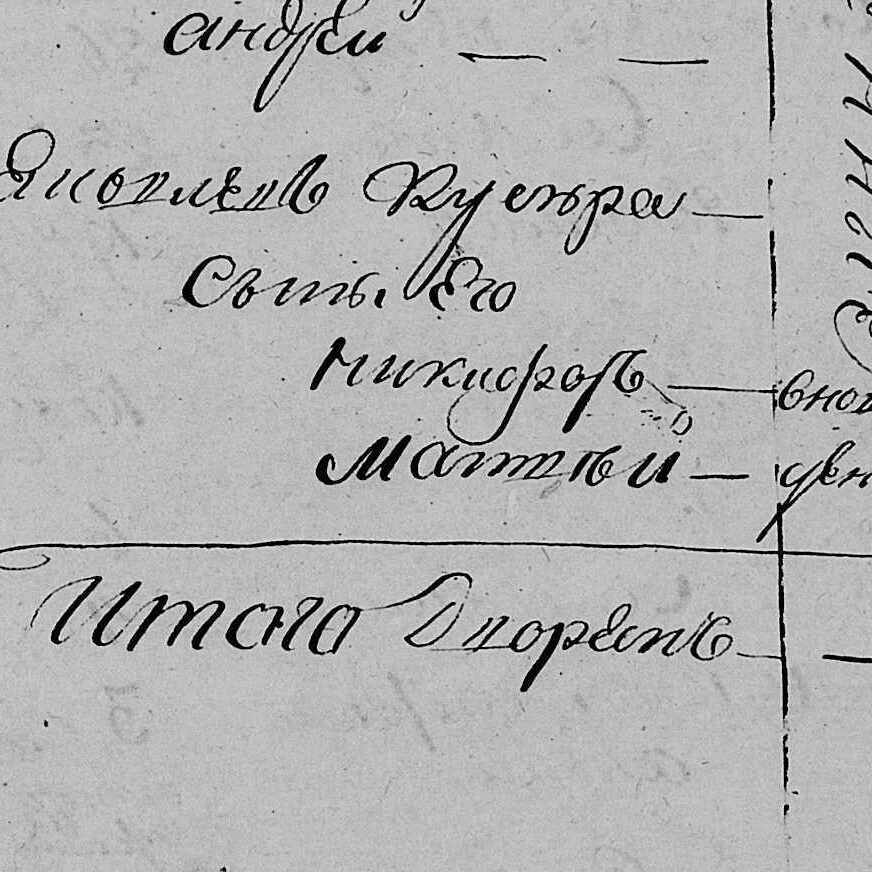 андреи — —
Яковлевъ Кузма —
Сынъ Его
Никифоръ — вно
Матвѣй — ден
Итого Дворянъ — —